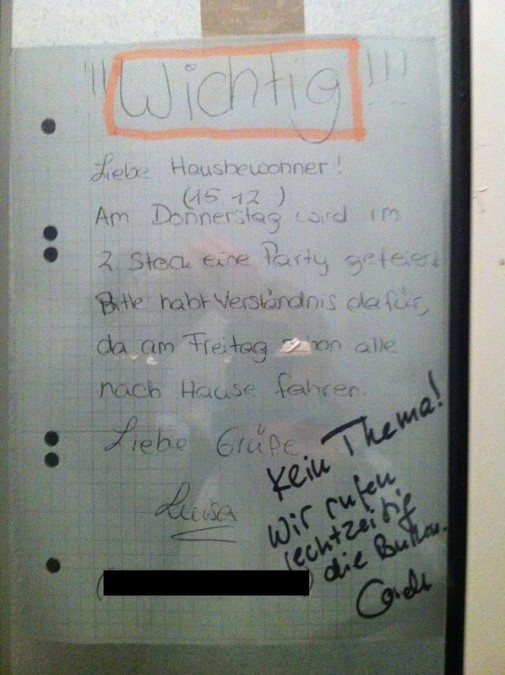 !!! Wichtig !!!
Liebe Hausbewohner!
(15.12.)
Am Donnerstag wird im
2. Stock eine Party gefeiert.
Bitte habt Verständnis dafür,
da am Freitag schon alle
nach Hause fahren.
Liebe Grüße
Luisa
Kein Thema!
Wir rufen
rechtzeitig
die Bullen.